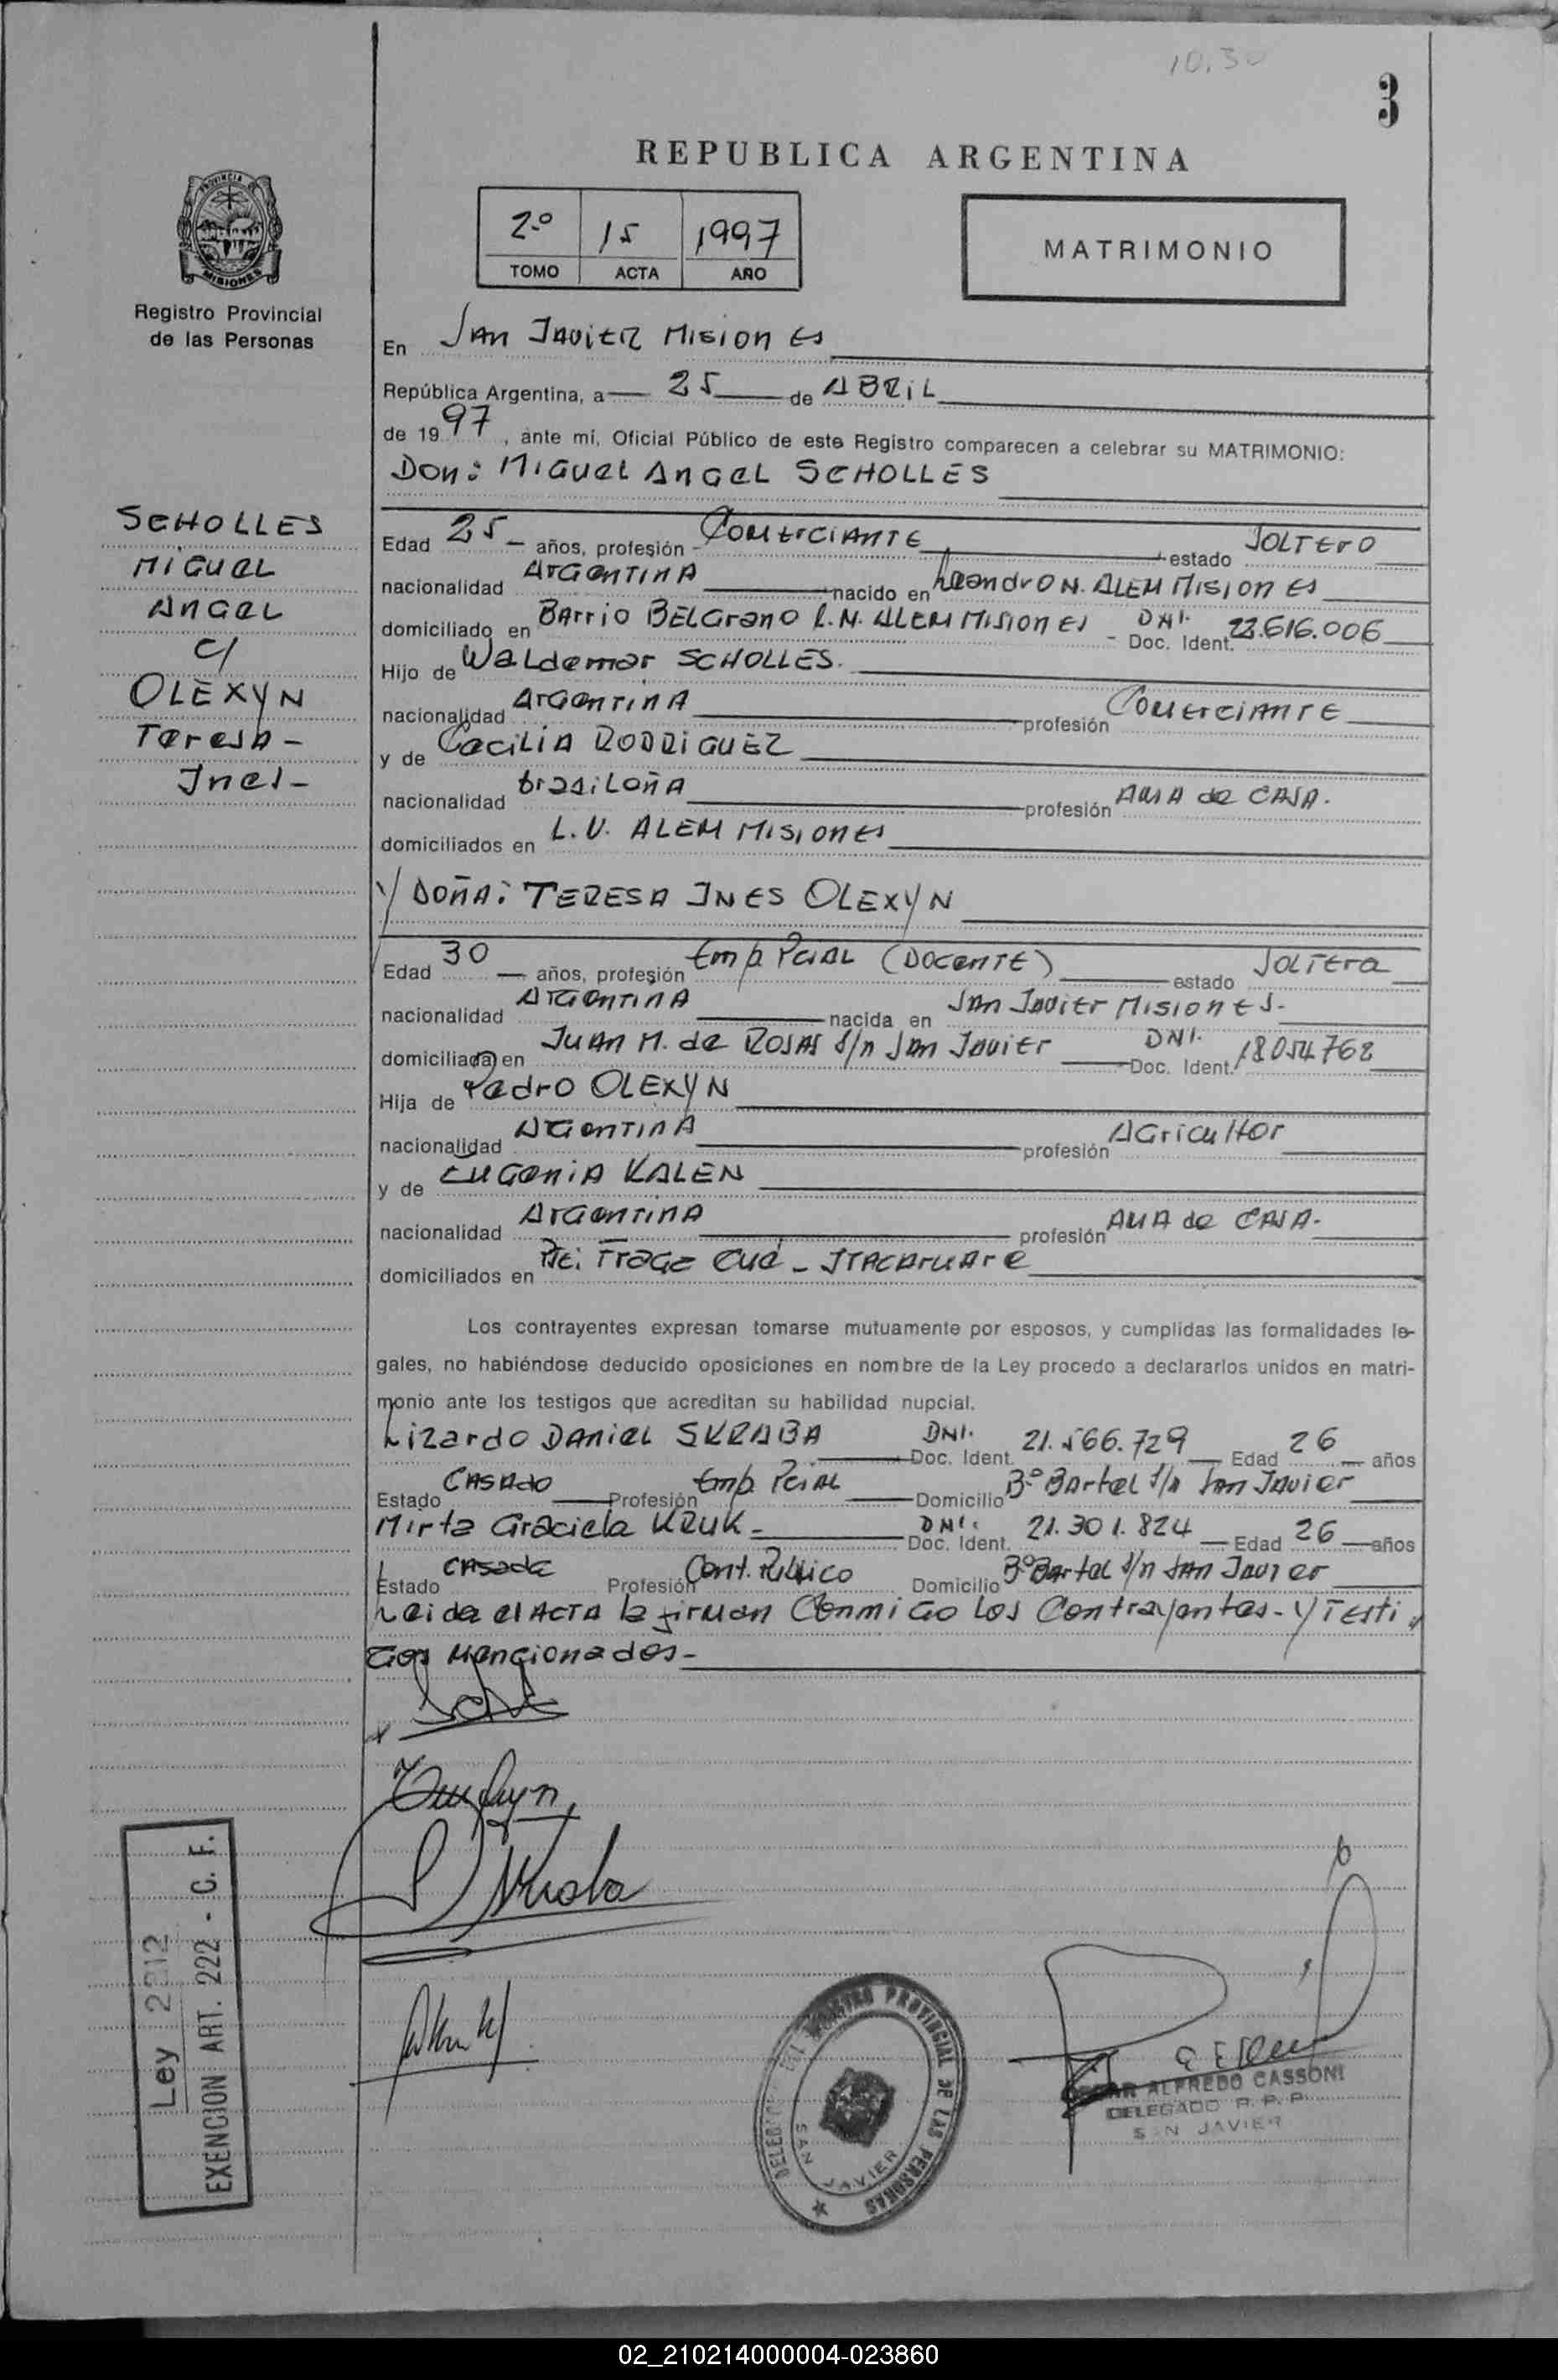 10.30
3
REPUBLICA ARGENTINA
2º 15 1997
TOMO ACTA AÑO
MATRIMONIO
PROVINCIA DE
MISIONES
Registro Provincial
de las Personas
SCHOLLES
MIGUEL
ANGEL
C/
OLEXYN
Teresa -
Ines -
En SAN JAVIER MISIONES
República Argentina, a 25 de ABRIL
de 1997, ante mí, Oficial Público de este Registro comparecen a celebrar su MATRIMONIO:
Don: MIGUEL ANGEL SCHOLLES
Edad 25 - años, profesión - COMERCIANTE estado SOLTERO
nacionalidad ARGENTINA nacido en Leandro N. ALEM MISIONES
domiciliado en BArrio BELGrano L.N. ALEM MISIONES - DNI. Doc. Ident. 22.616.006
Hijo de WaLdemar SCHOLLES.
nacionalidad ArGentinA profesión COMERCIANTE
y de CeciLIA RODRIGUEZ
nacionalidad brasiLeñA profesión AMA de CASA.
domiciliados en L.N. ALEM MISIONES
Y DOÑA: TERESA INES OLEXYN
Edad 30 años, profesión Emp PciAL (DOCENTE) estado SOLTEra
nacionalidad ARGENTINA nacida en SAn JAviEr MISIONES.-
domiciliada en JUAN M. de ROSAS S/n SAn JAvier DNI. Doc. Ident. 18054762
Hija de Pedro OLEXYN
nacionalidad ARGENTINA profesión AGricultor
y de EUGENIA KALEN
nacionalidad ARGENTINA profesión AMA de CASA.-
domiciliados en Pje. - ITACARUARE
Los contrayentes expresan tomarse mutuamente por esposos, y cumplidas las formalidades le-
gales, no habiéndose deducido oposiciones en nombre de la Ley procedo a declararlos unidos en matri-
monio ante los testigos que acreditan su habilidad nupcial.
Lizardo DANIEL SKRABA DNI. Doc. Ident. 21.566.729 Edad 26 años
Estado CASADO Profesión Emp. PciAL Domicilio Bº BArtel S/n SAn JAvier
Mirta Graciela KRUK - DNI. Doc. Ident. 21.301.824 Edad 26 años
Estado CAsada Profesión Cont. Público Domicilio Bº Bartel S/n SAn JAvier
Leida el ACTA la firman ConmiGo Los Contrayentes - y Testi
Gos Mencionados -
Ley 2212
EXENCION ART. 222 - C. F.
REGISTRO PROVINCIAL DE LAS PERSONAS
SAN JAVIER
ALFREDO CASSONI
DELEGADO R. P. P.
SAN JAVIER
02_210214000004-023860